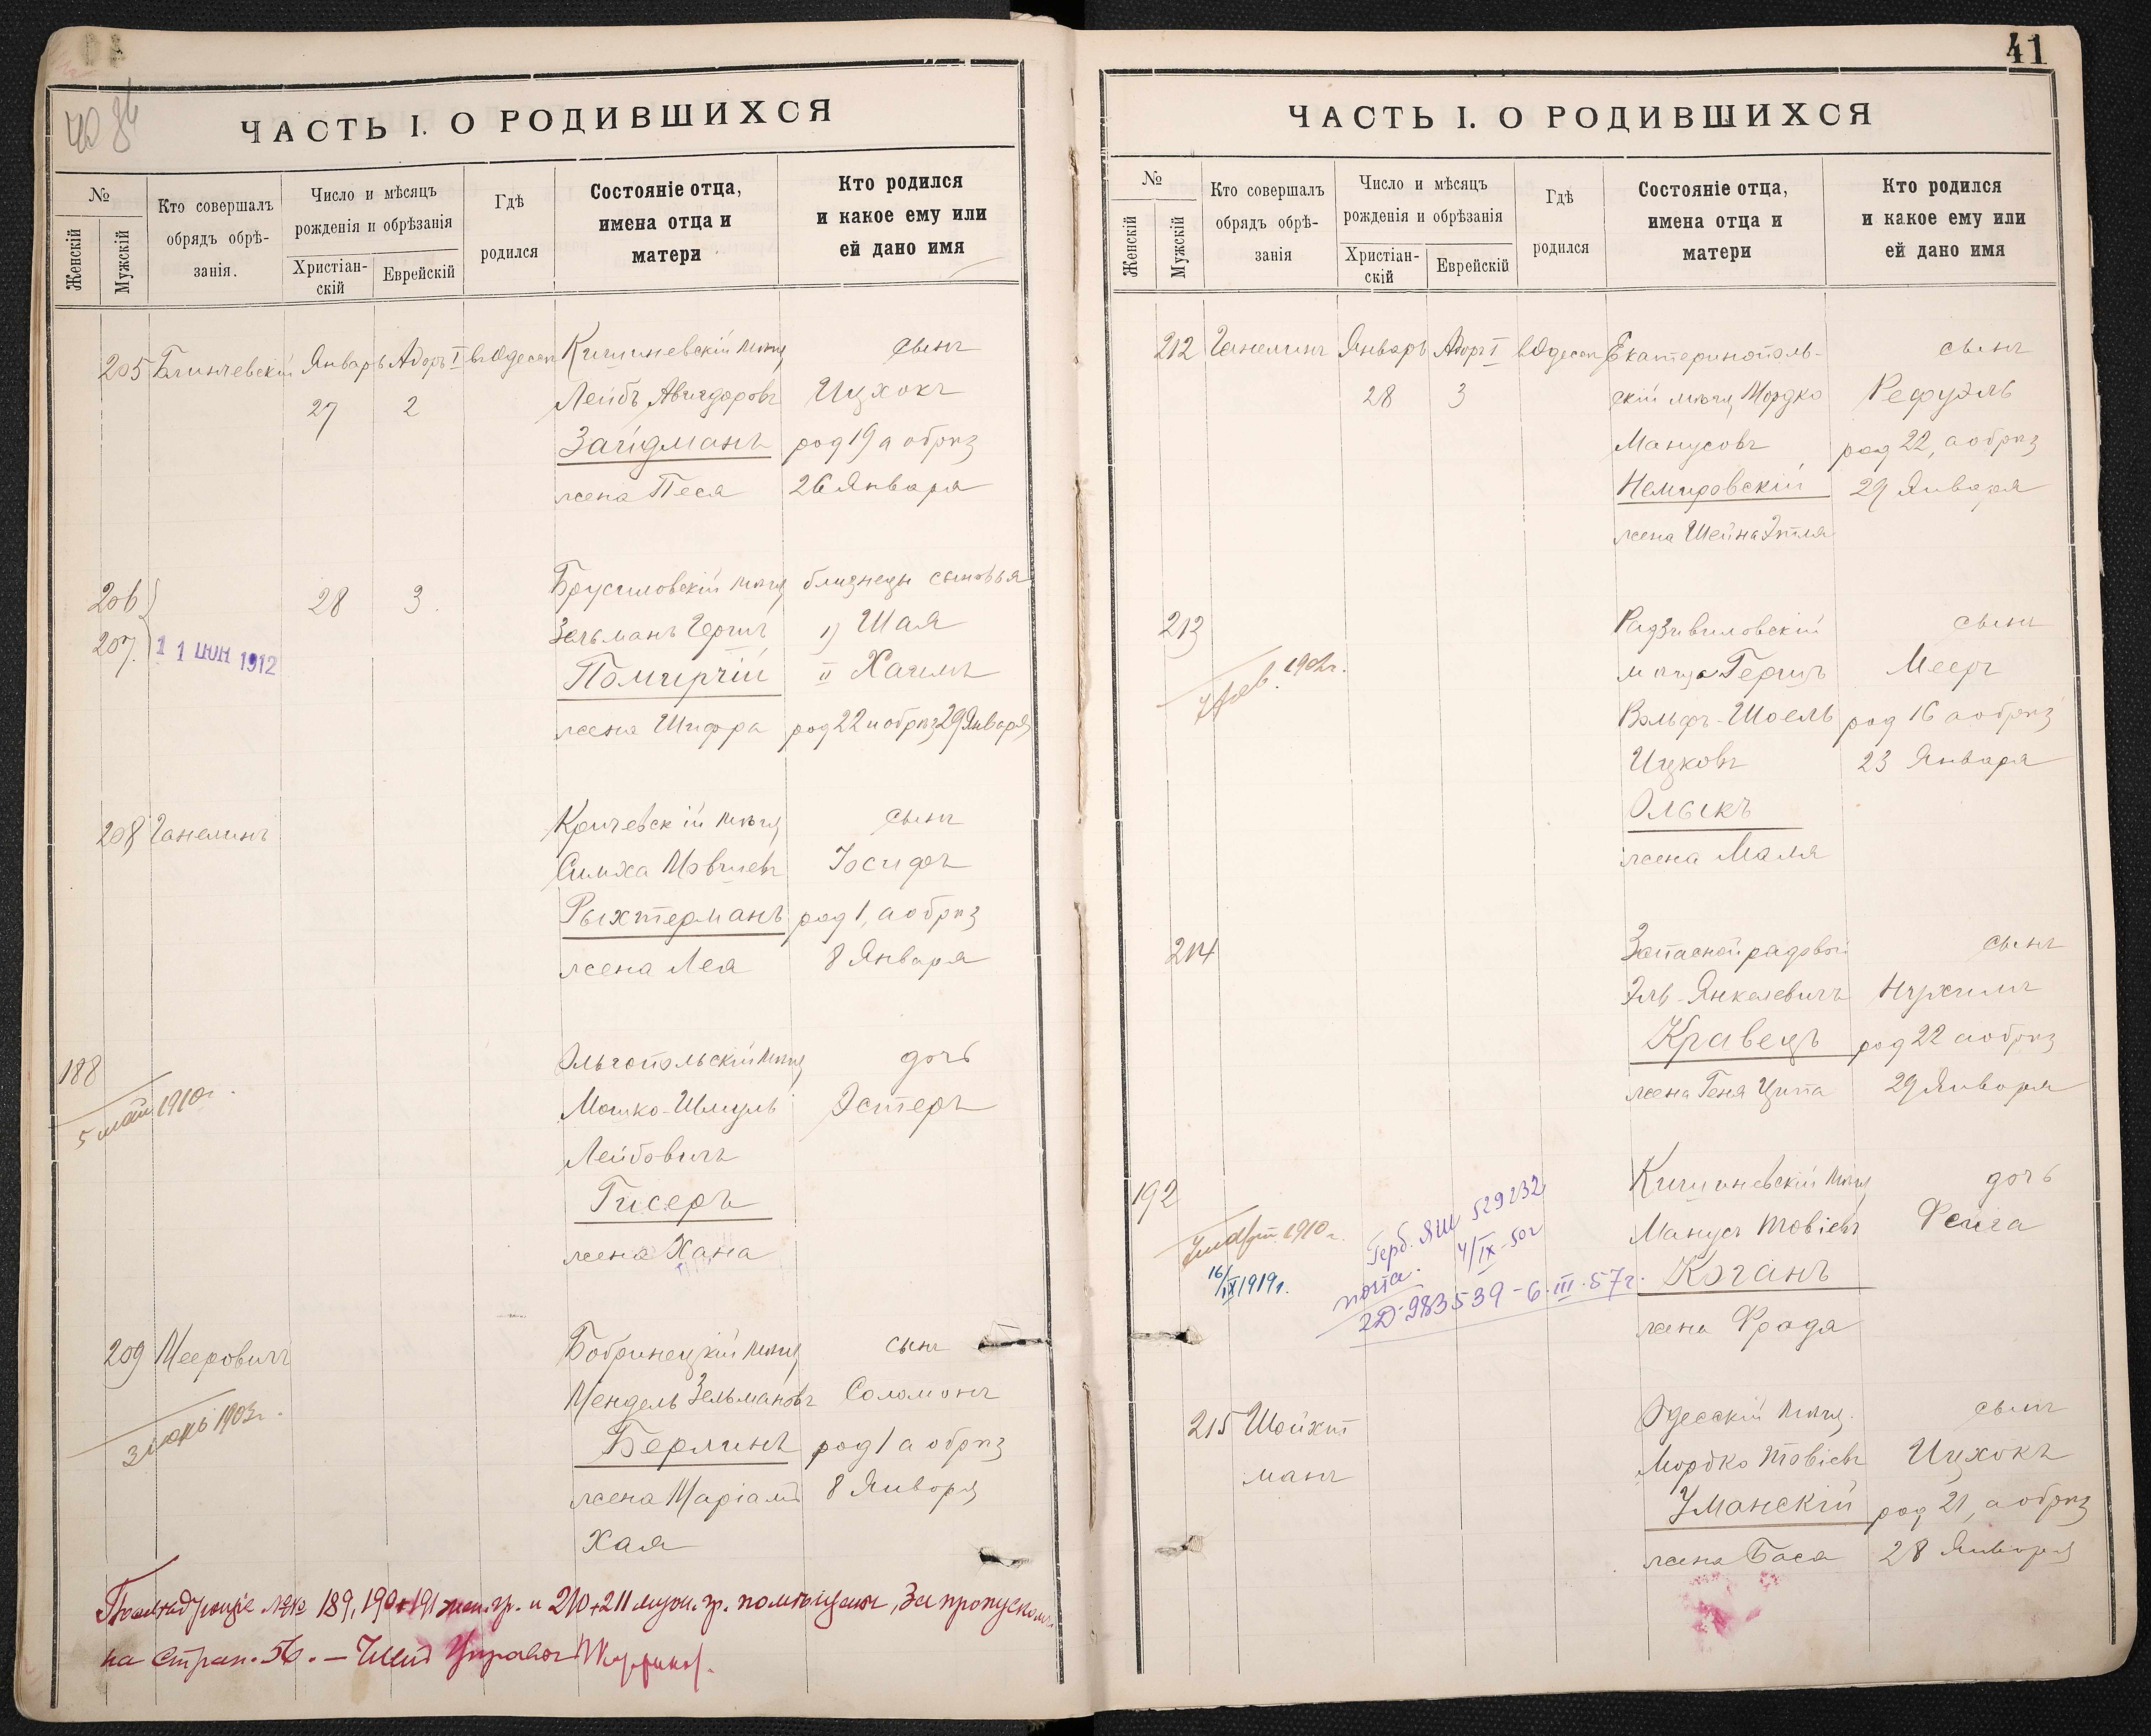 40 84
ЧАСТЬ I. О РОДИВШИХСЯ
№
Женскій
Мужскій
Кто совершалъ
обрядъ обрѣ-
занія.
Число и мѣсяцъ
рожденія и обрѣзанія
Христіан-
скій
Еврейскій
Гдѣ
родился
Состояніе отца,
имена отца и
матери
Кто родился
и какое ему или
ей дано имя
205 Январь Адоръ I въ Одессѣ Кишиневскій мѣщ сынъ
27 2 Лейбъ Авигдоровъ Ицхокъ
Зайдманъ род 19 а обрѣз
жена Песя 26 Января
206 28 3 Брусиловскій мѣщ близнецы сыновья
207 11 ІЮН 1912 Зельманъ Герши 1) Шая
Помирчій II Хаимъ
жена Шифра род 22 и обрѣз 29 Января
208 Ганелинъ Кричевскій мѣщ сынъ
Симха Мовшевъ Іосифъ
Рыхтерманъ род 1, а обрѣз
жена Лея 8 Января
188 Ольгопольскій мѣщ дочь
5 май 1910г. Мошко-Шмуль Эстеръ
Лейбовичъ
Гисеръ
жена Хана
209 Мееровичъ Бобринецкій мѣщ сынъ
Мендель Зельмановъ Соломонъ
1903г. Берлинъ род 1 а обрѣз
жена Маріамъ 8 Января
Хая
189, 190 + 191 жен. гр. и 210 + 211 муж. гр. помѣщены, за пропускомъ
на стран. 56. —
41
ЧАСТЬ I. О РОДИВШИХСЯ
№
Женскій
Мужскій
Кто совершалъ
обрядъ обрѣ-
занія
Число и мѣсяцъ
рожденія и обрѣзанія
Христіан-
скій
Еврейскій
Гдѣ
родился
Состояніе отца,
имена отца и
матери
Кто родился
и какое ему или
ей дано имя
212 Ганелинъ Январь Адоръ I въ Одессѣ Екатеринополь- сынъ
28 3 скій мѣщ Мордко Рефуэль
Манусовъ род 22, а обрѣз
Немировскій 29 Января
жена Шейна Этля
213 Радзивиловскій сынъ
мѣщ Герцъ Мееръ
Вольфъ-Шоель род 16 а обрѣз
Ицковъ 23 Января
Олыкъ
жена Маля
214 Запасной рядовой сынъ
Янкелевичъ Нухимъ
Кравецъ род 22 а обрѣз
жена Геня Ципа 29 Января
192 Кишиневскій мѣщ дочь
1910г. Герб. ЯШ 529232 Манусъ Товіевъ Фейга
16/IX 1919г. почта. 4/IX-50г Коганъ
2D-983539-6.III.57г.
жена Фрада
215 Шойхт Одесскій мѣщ. сынъ
манъ Мордко Товіевъ Ицхокъ
Уманскій род 21, а обрѣз
жена Бася 28 Января